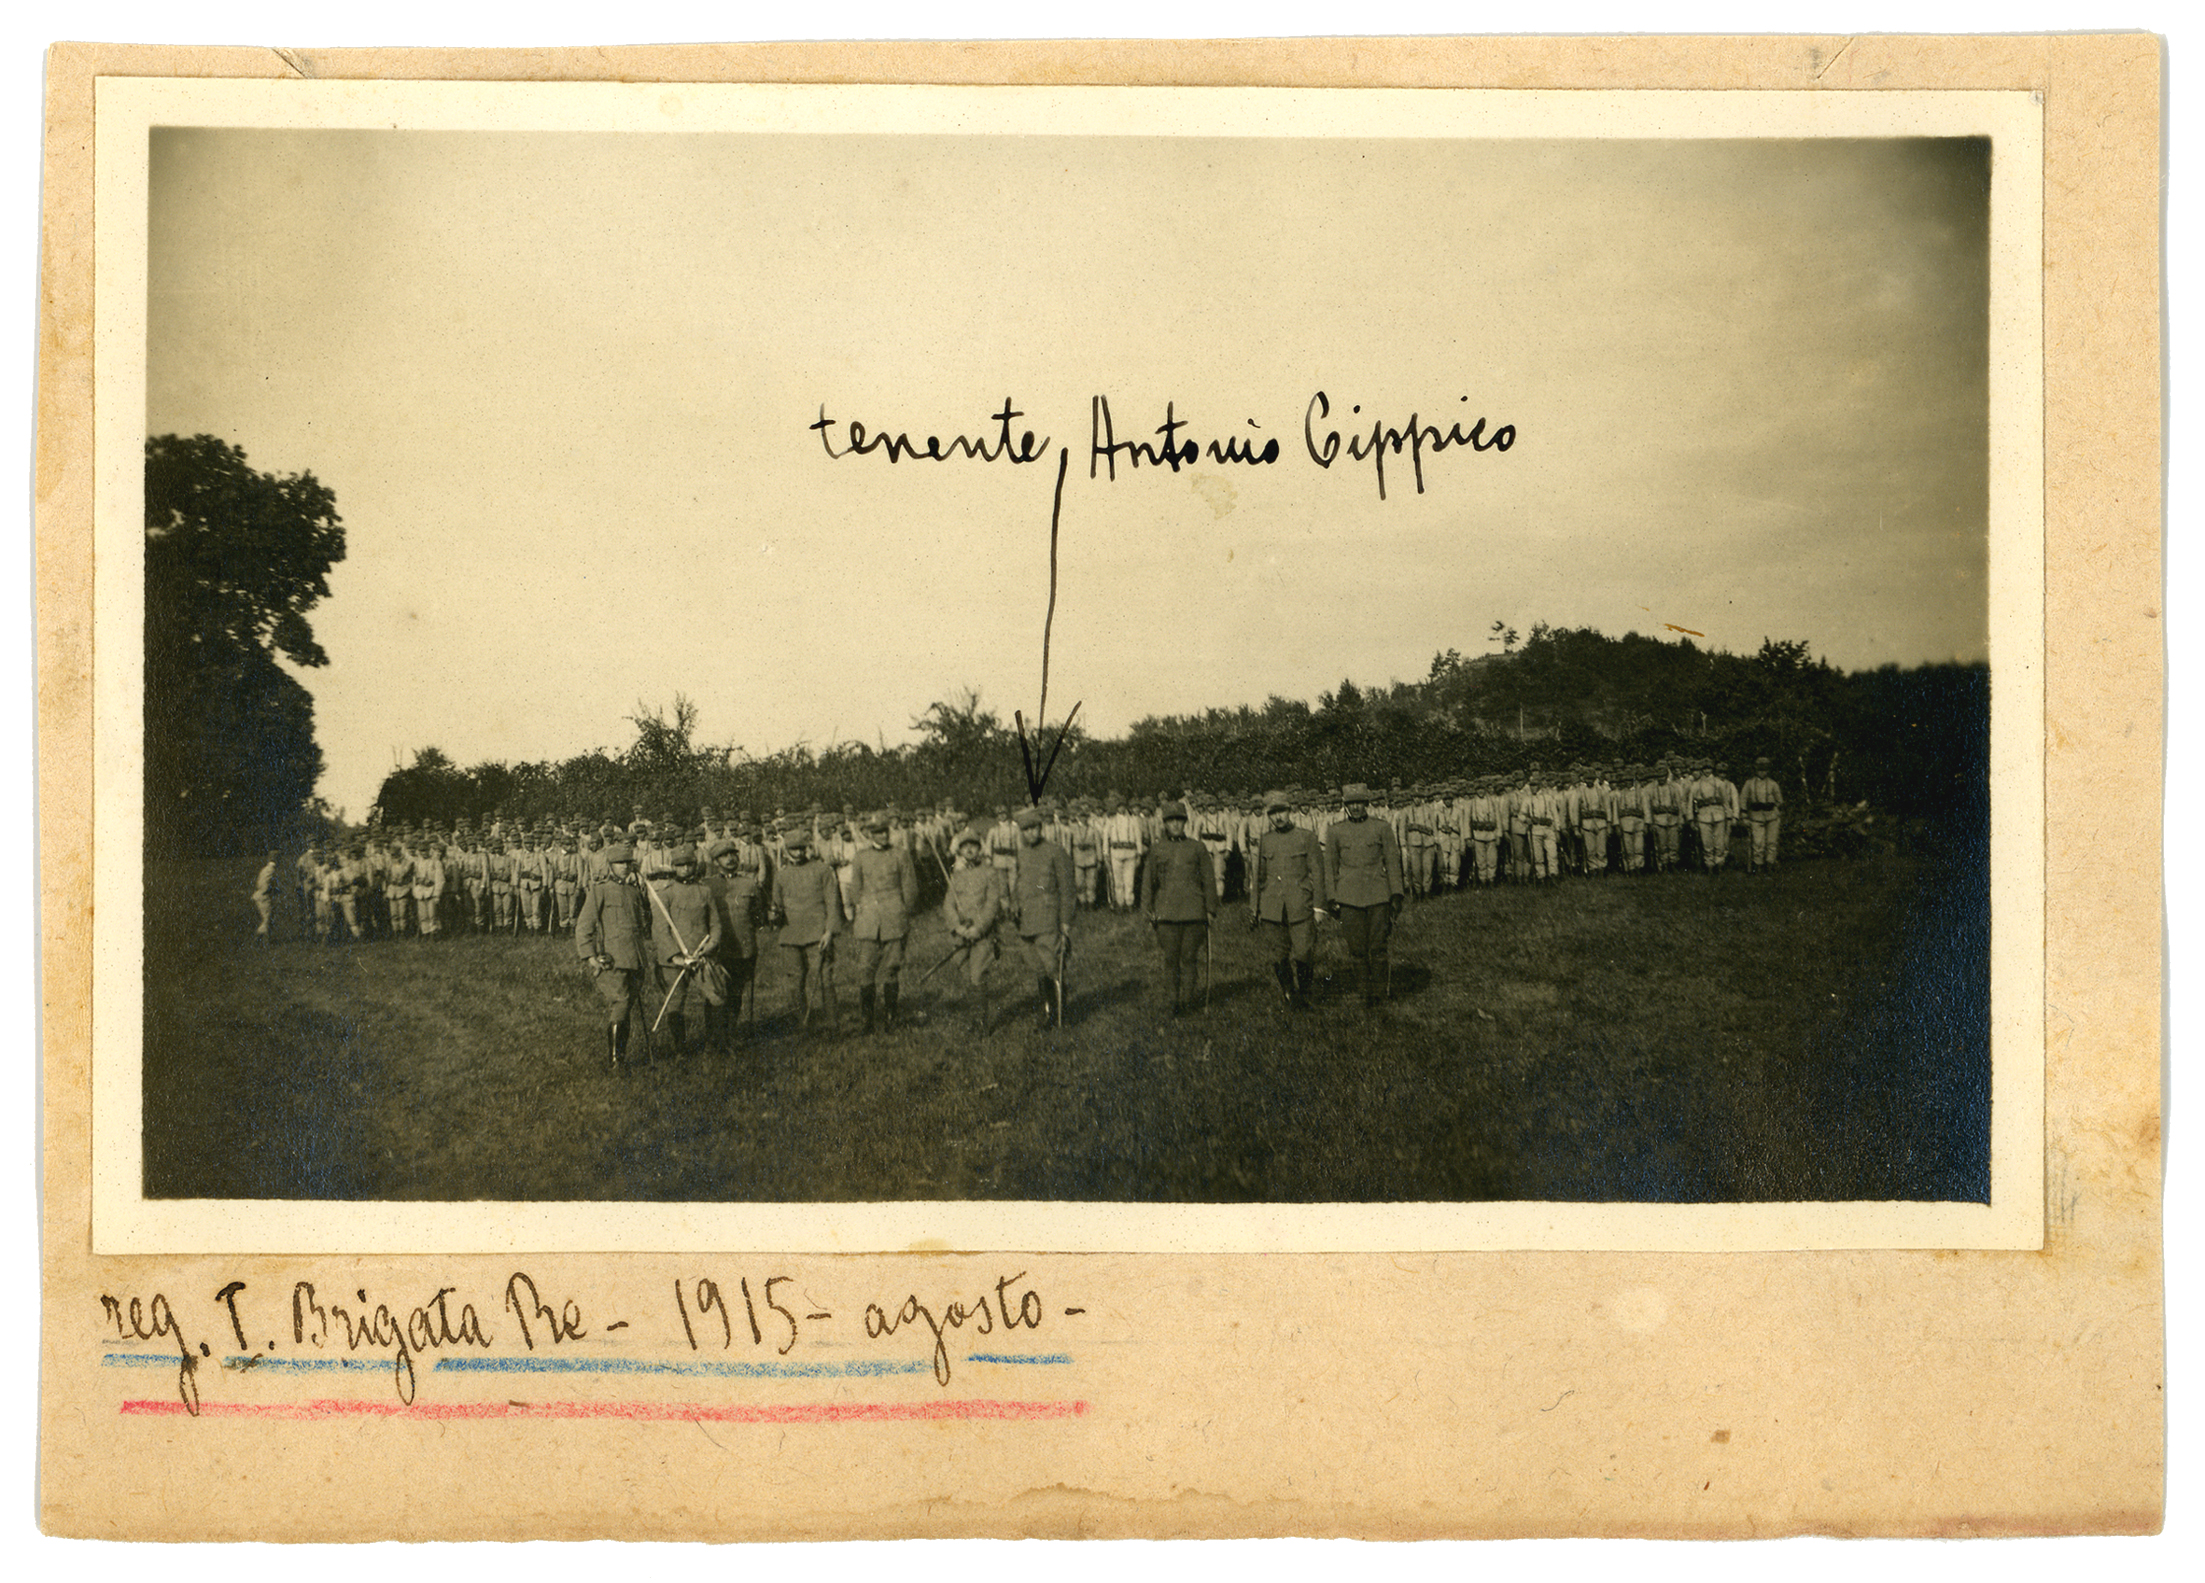 tenente, Antonio Cippico
reg. I. Brigata Re - 1915 - agosto -